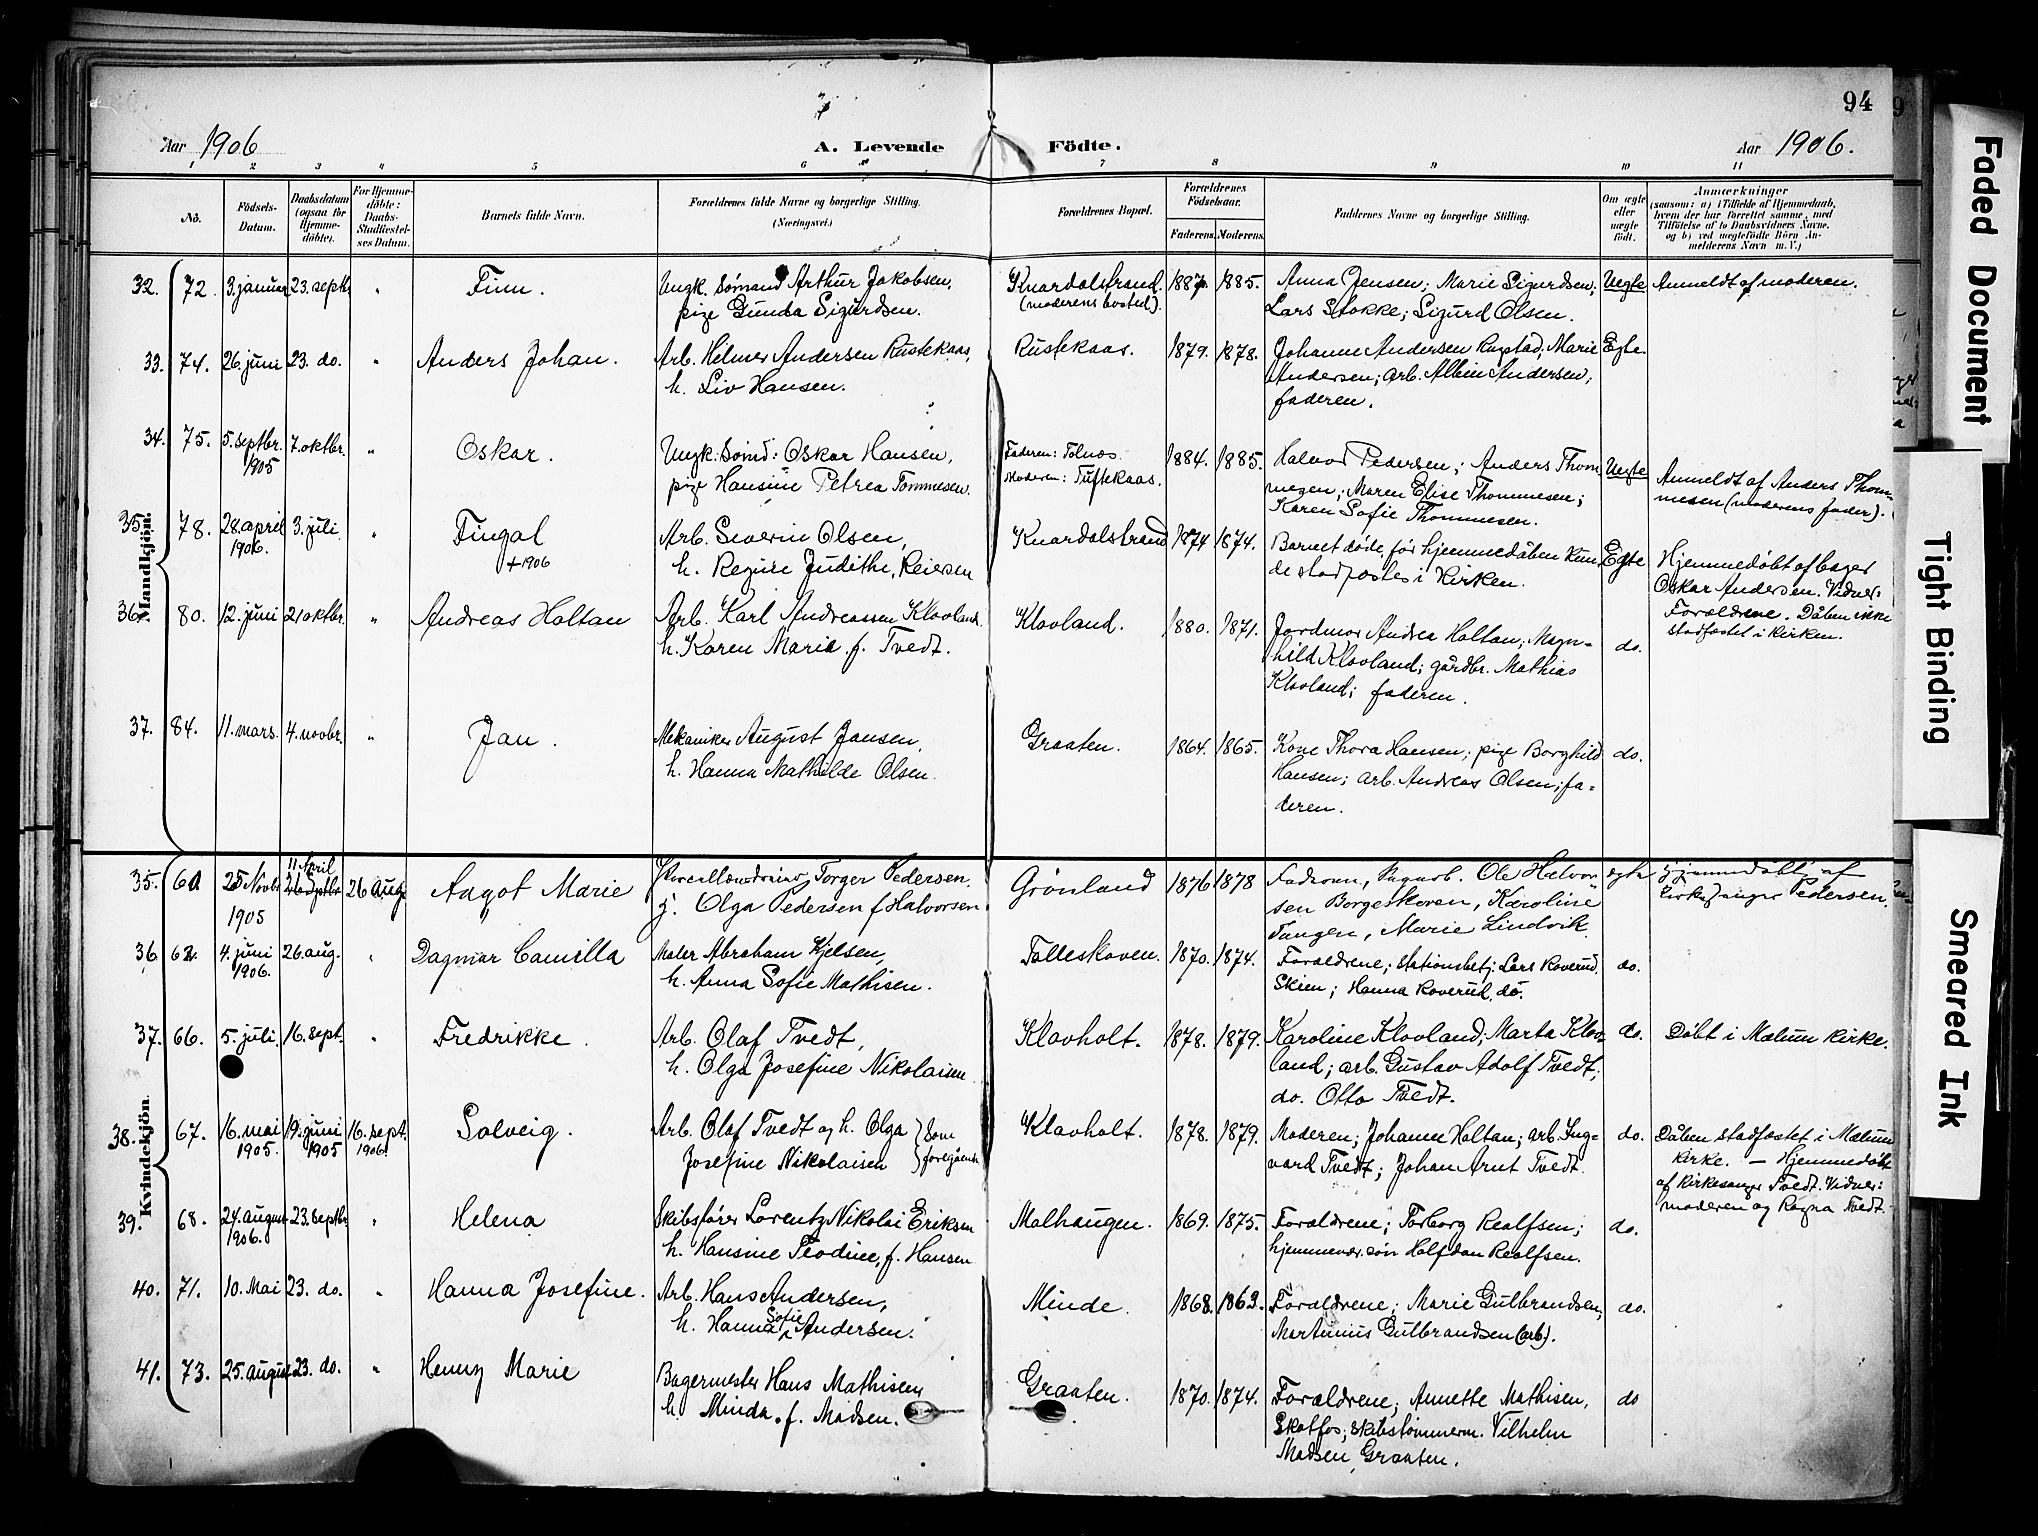 94
Aar 1906
A. Levende
Födte.
Aar 1906.
1 2 3 4 5 6 7 8 9 10 11
No.
Födsels-Datum.
Daabsdatum (ogsaa for Hjemme-döbte).
For Hjemme-döbte: Daabs-Stadfæstel-ses Datum.
Barnets fulde Navn.
Forældrenes fulde Navne og borgerlige Stilling.
(Næringsvei.)
Forældrenes Bopæl.
Forældrenes Födselsaar.
Faderens. Moderens.
Faddernes Navne og borgerlige Stilling.
Om ægte eller uægte födt.
Anmærkninger
(saasom: a) i Tilfælde af Hjemmedaab, hvem der har forrettet samme, med Tilföielse af to Daabsvidners Navne, og b) ved uægtefödte Börn An-melderens Navn m. V.)
Mandkjön.
32. 72. 3. januar 23. septbr. " Finn. Ungk. Sømand Arthur Jakobsen, Knardalstrand 1887 1885. Anna Jensen; Marie Sigurdsen; Uegte Anmeldt af moderen.
pige Gunda Sigurdsen. (moderens bosted). Lars Stokke; Sigurd Olsen.
33. 74. 26. juni 23. do. " Anders Johan. Arb. Helmer Andersen Rustekaas, Rustekaas. 1879. 1878. Johanne Andersen Rugstad; Marie Egte.
h. Liv Hansen. Andersen; arb. Albin Andersen;
faderen.
34. 75. 5. septbr. 1905 7. oktbr. " Oskar. Ungk. Sømd: Oskar Hansen, Faderen: Tolnæs. 1884. 1885. Halvor Pedersen; Anders Thom- Uegte Anmeldt af Anders Thom-
pige Hansine Petrea Tommesen. Moderen: Tuftekaas. mesen; Maren Elise Thommesen; mesen (moderens fader).
Karen Sofie Thommesen.
35. 78. 28. april 1906. 3. juli " Fingal Arb. Severin Olsen, Knardalstrand 1874 1874. Barnet døde, før hjemmedåben kun- Egte Hjemmedøbt af bager
+ 1906 h. Regine Judithe, Reiersen de stadfæstes i Kirken. Oskar Andersen. Vidner:
Forældrene. Dåben ikke
stadfæstet i kirken.
36. 80. 12. juni 21 oktbr. " Andreas Holtan Arb. Karl Andreassen Klovland. Klovland. 1880. 1871. Jordmor Andrea Holtan; Magn- do.
h. Karen Marie f. Tvedt. hild Klovland; gårdbr. Mathias
Klovland; faderen.
37. 84. 11. mars. 4. novbr. " Jan. Mekaniker August Jansen, Graaten. 1864. 1865. Kone Thora Hansen; pige Borghild do.
h. Hanna Mathilde Olsen. Hansen; arb. Andreas Olsen; fa-
deren.
Kvindekjön.
35. 60 25 Novbr 1905 11 April 26 Septbr 26 Aug Aagot Marie Torger Pedersen. Grønland 1876 1878 Faderen, Ole Halvor- egte Hjemmedøbt af
Olga Pedersen f Halvorsen sen Borgeskoven, Karoline Kirkesanger Pedersen.
Tangen, Marie Lindvik
36. 62. 4. juni 1906. 26. aug. " Dagmar Camilla Maler Abraham Kjelsen, Folleskoven. 1870. 1874. Forældrene; stationsbetj. Lars Roverud, do.
h. Anna Sofie Mathisen. Skien; Hanna Roverud, do.
37. 66. 5. juli. 16. sept. " Fredrikke. Arb. Olaf Tvedt, Klovholt. 1878. 1879. Karoline Klovland; Marta Klov- do. Døbt i Mælum kirke.
h. Olga Josefine Nikolaisen. land; arb. Gustav Adolf Tvedt;
do. Otto Tvedt.
38. 67. 16. mai 1905. 19. juni 1905 16. sept. 1906. Solveig. Arb. Olaf Tvedt og h. Olga Josefine Nikolaisen } som foregående Klovholt. 1878. 1879. Moderen; Johanne Holtan; arb. Ing- do. Dåben stadfæstet i Mælum
vard Tvedt; Johan Arnt Tvedt. kirke. – Hjemmedøbt
af kirkesanger Tvedt. Vidner:
moderen og Ragna Tvedt.
39. 68. 24. august 1906. 23. septbr " Helena Skibsfører Lorentz Nikolai Eriksen Molhaugen. 1869. 1875. Forældrene; Torborg Realfsen; do.
h. Hansine Teodine, f. Hansen hjemmevær. søn Halfdan Realfsen.
40. 71. 10. Mai 23. do. " Hanna Josefine. Arb. Hans Andersen, Minde. 1868. 1863. Forældrene; Marie Gulbrandsen, do.
h. Hanna Sofie Andersen. Martinius Gulbrandsen (arb).
41. 73. 25. august 23. do. " Henny Marie Bagermester Hans Mathisen, Graaten. 1870. 1874. Forældrene; Annette Mathisen, do
h. Minda, f. Madsen. Skotfos; skibstømmerm. Vilhelm
Madsen, Graaten.
Faded Document
Tight Binding
Smeared Ink